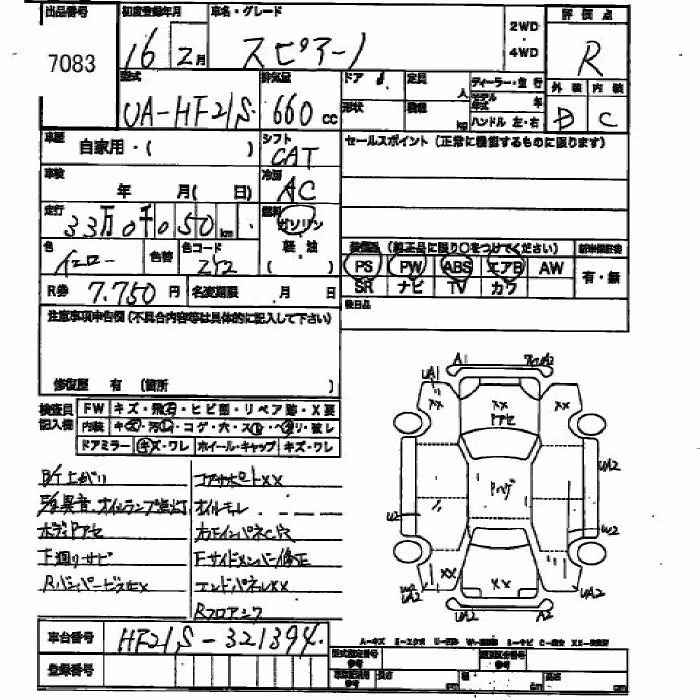 出品番号 初度登録年月 車名・グレード 2WD 評価点
7083 16 2月 スピアーノ ・4WD R
型式 排気量 ドア 定員 人 ディーラー・並行 外装 内装
UA-HF21S 660 cc 形状 kg モデル年式 年 D C
ハンドル 左・右
車歴 自家用・( ) シフト CAT セールスポイント(正常に機能するものに限ります)
車検 年 月( 日) 冷房 AC
走行 33万0千050 km 燃料 ガソリン
軽油
( )
色 イエロー 色替 色コード ZY2 装備品(純正品に限り○をつけてください)
PS PW ABS エアB AW 有・無
SR ナビ TV カワ
R券 7.750 円 名変期限 月 日
注意事項申告欄(不具合内容等は具体的に記入して下さい)
修復歴 有(箇所
検査員記入欄 FW キズ・飛石・ヒビ割・リペア跡・X要
内装
ドアミラー キズ・ワレ ホイール・キャップ キズ・ワレ
コアサポートXX
異音、オイルランプ点灯 オイルモレ
ボディドアセ 右インパネビス穴
下廻りサビ Fサイドメンバー修正
エンドパネルXX
Rフロア
A1 UA1 XX XX XX ドアセ
UA2 W2 W2 UA2
XX XX UA2 UA2 A2
車台番号 HF21S-321394
登録番号